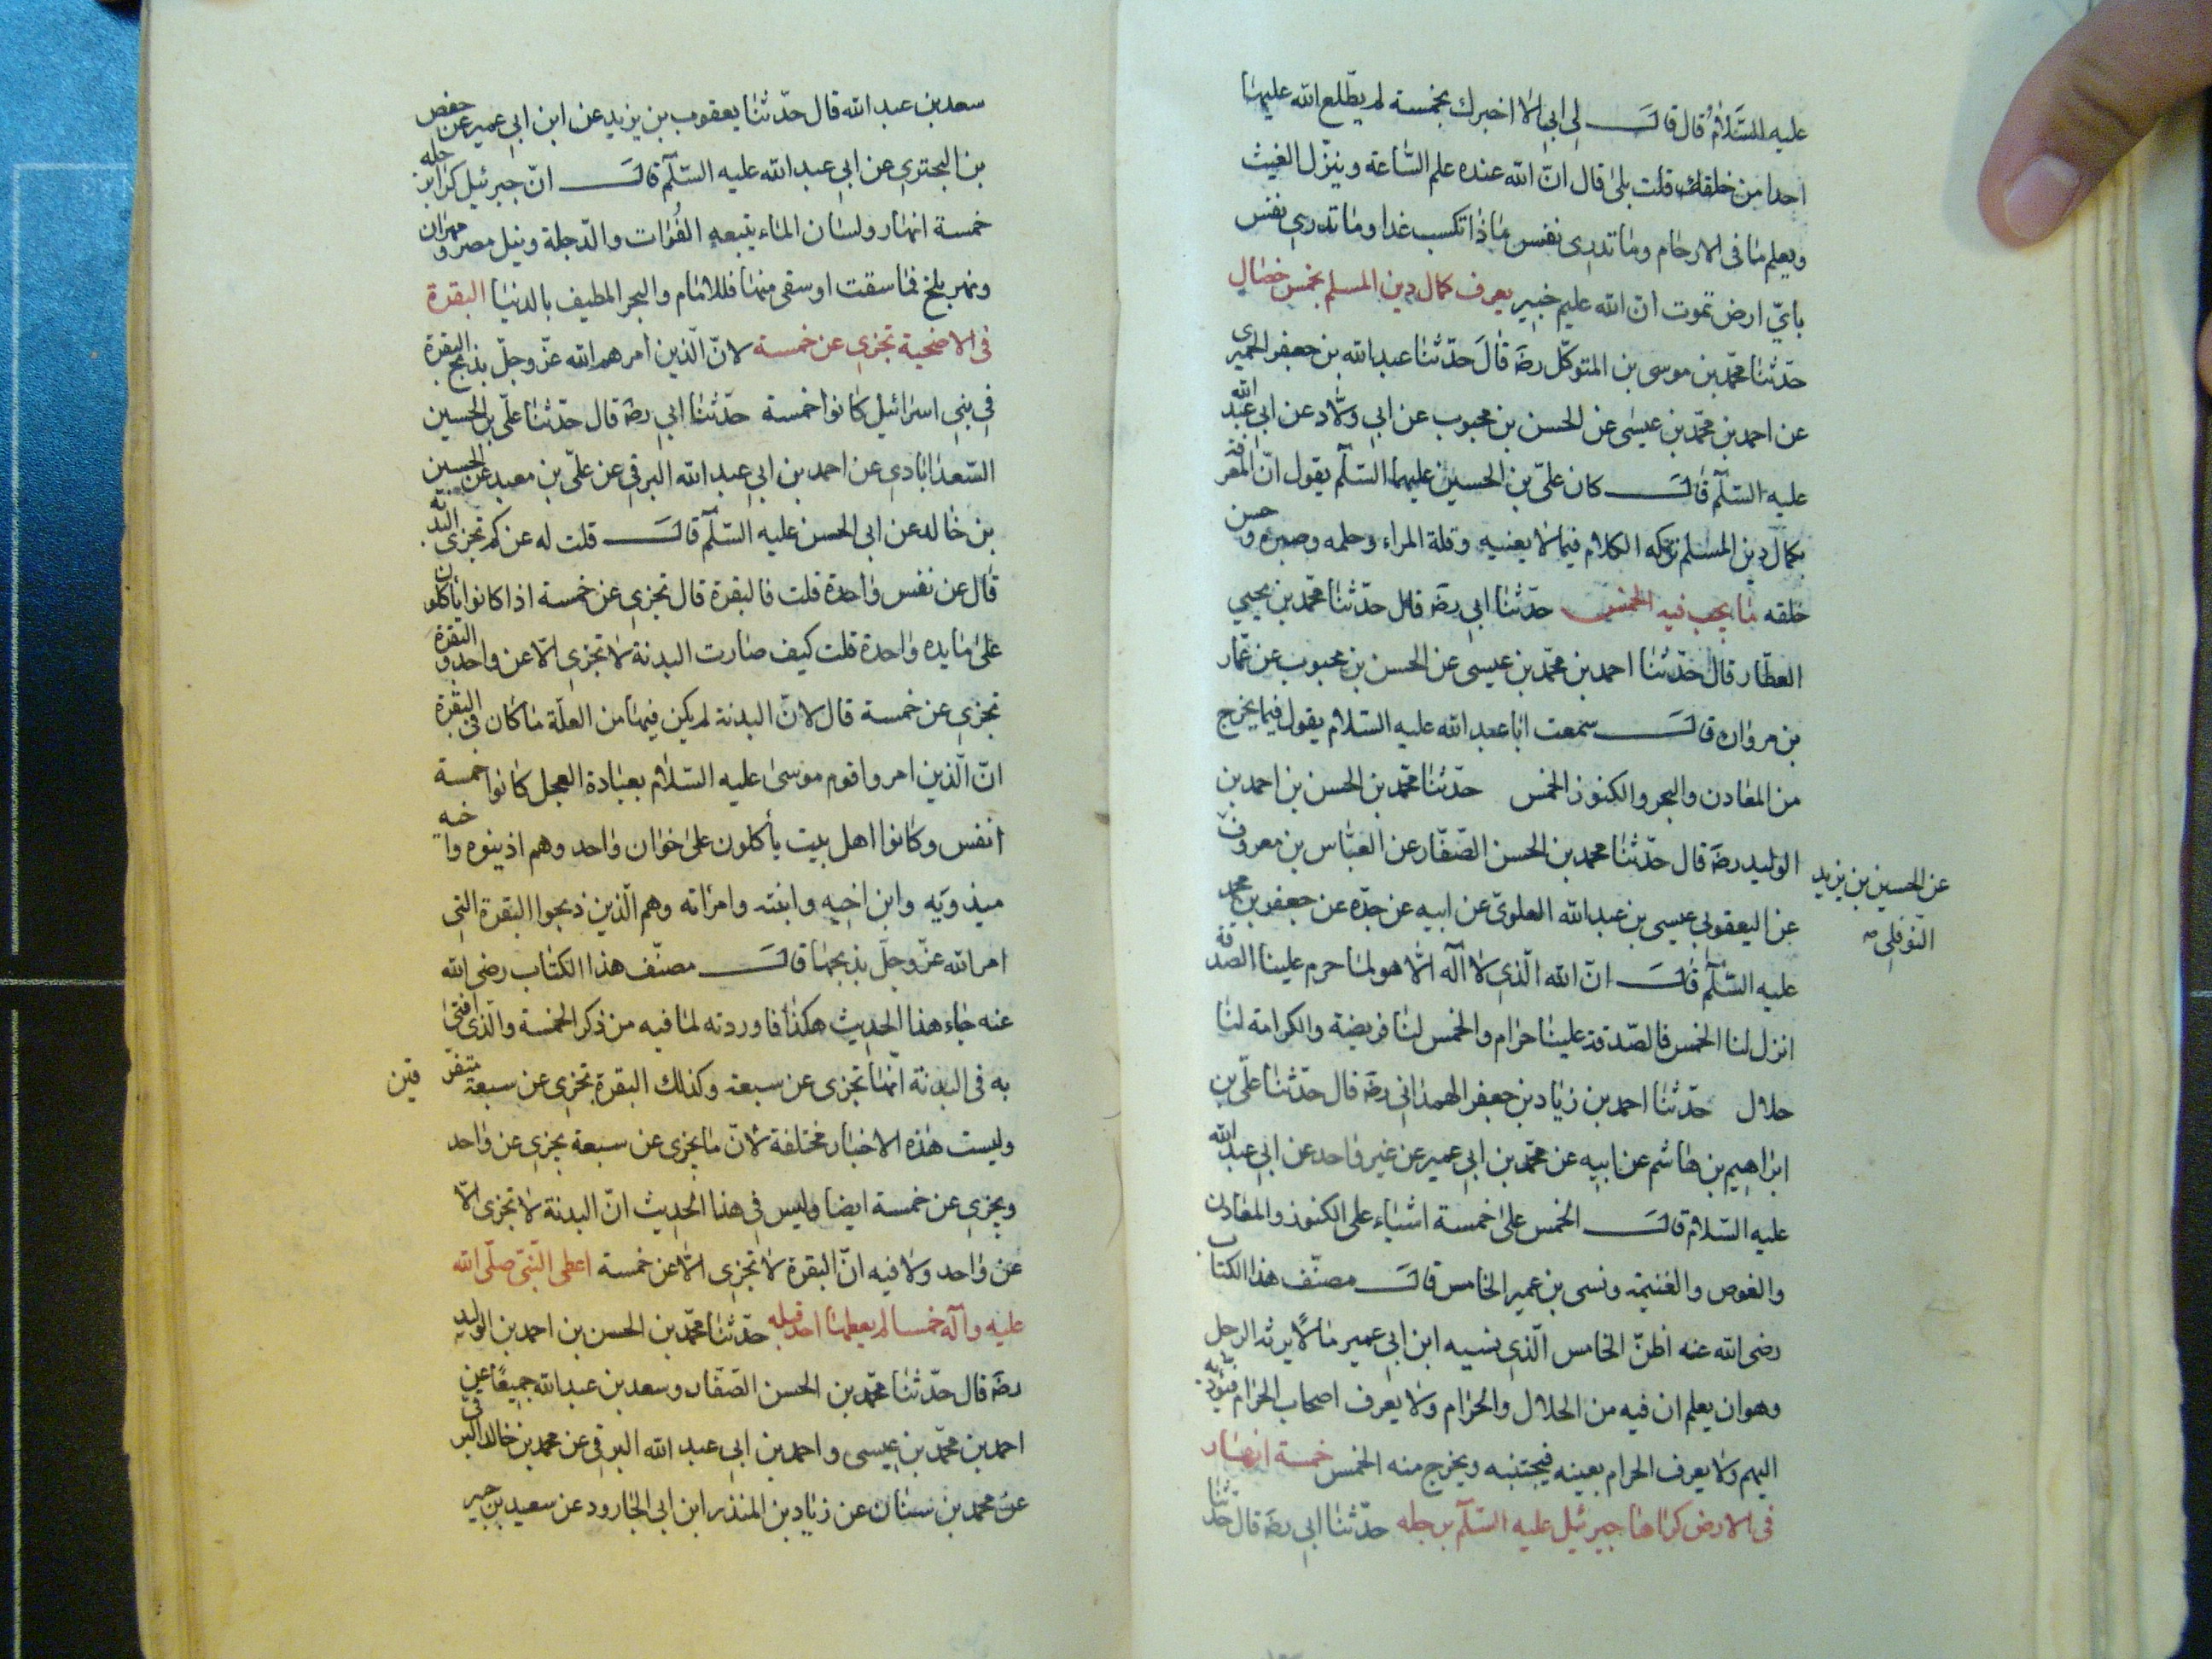 عليه السَّلامُ قال قالَ لى ابى الا اخبرك بخمسة لم يطّلع الله عليها
احدا من خلقه قلت بلى قال انّ الله عنده علم السّاعة وينزّل الغيث
ويعلم ما فى الارحام وما تدرى نفس ماذا تكسب غدا وما تدرى نفس
بايّ ارض تموت انّ الله عليم خبير يعرف كمال دين المسلم بخمس خصال
حدّثنا محمّد بن موسى بن المتوكّل رضَه قالَ حدّثنا عبد الله بن جعفر الحميرى
عن احمد بن محمّد بن عيسى عن الحسن بن محبوب عن ابى ولّاد عن ابى عبد الله
عليه السّلم قالَ كان علىّ بن الحسين عليهما السّلم يقول انّ المعرفة
بكمال دين المسلم تركه الكلام فيما لا يعنيه وقلة المراء وحلمه وصبره وحسن
خلقه ما يجب فيه الخمس حدّثنا ابى رضَه قال حدّثنا محمّد بن يحيى
العطّار قال حدّثنا احمد بن محمّد بن عيسى عن الحسن بن محبوب عن عمّار
بن مروان قالَ سمعت ابا عبد الله عليه السّلام يقول فيما يخرج
من المعادن والبحر والكنوز الخمس حدّثنا محمّد بن الحسن بن احمد بن
الوليد رضَه قال حدّثنا محمد بن الحسن الصّفّار عن العبّاس بن معروف
عن الحسين بن يزيد
النّوفلى صح
عن اليعقوبى عيسى بن عبد الله العلوىّ عن ابيه عن جدّه عن جعفر بن محمد
عليه السّلم قالَ انّ الله الّذى لا اله الّا هو لما حرم علينا الصدقة
انزل لنا الخمس فالصّدقة علينا حرام والخمس لنا فريضة والكرامة لنا
حلال حدّثنا احمد بن زياد بن جعفر الهمدانى رضَه قال حدّثنا علىّ بن
ابراهيم بن هاشم عن ابيه عن محمّد بن ابى عمير عن غير واحد عن ابى عبد الله
عليه السّلام قالَ الخمس على خمسة اشياء على الكنوز والمعادن
والغوص والغنيمة ونسى بن عمير الخامس قالَ مصنّف هذا الكتاب
رضى الله عنه اظنّ الخامس الّذى نسيه ابن ابى عمير مالًا يرثه الرجل
وهو ان يعلم ان فيه من الحلال والحرام ولا يعرف اصحاب الحرام فيؤديه
اليهم ولا يعرف الحرام بعينه فيجتنبه ويخرج منه الخمس خمسة انهار
فى الارض كراها جبرئيل عليه السّلم برجله حدّثنا ابى رضَه قال حدّثنا
سعد بن عبد الله قال حدّثنا يعقوب بن يزيد عن ابن ابى عمير عن حفص
بن البخترى عن ابى عبد الله عليه السّلم قالَ انّ جبرئيل كرا برجله
خمسة انهار ولسان الماء يتبعه الفُرات والدّجلة ونيل مصر ومهران
ونهر بلخ فما سقت او سقى منها فللامام والبحر المطيف بالدنيا البقرة
فى الاضحية تجزى عن خمسة لانّ الّذين امرهم الله عزّ وجلّ بذبح البقرة
فى بنى اسرائيل كانوا خمسة حدّثنا ابى رضَه قال حدّثنا علىّ بن الحسين
السّعدابادى عن احمد بن ابى عبد الله البرقى عن علىّ بن معبد عن الحسين
بن خالد عن ابى الحسن عليه السّلم قالَ قلت له عن كم تجزى البدنة
قال عن نفس واحدة قلت فالبقرة قال تجزى عن خمسة اذا كانوا يأكلون
على مايده واحدة قلت كيف صارت البدنة لا تجزى الّا عن واحد والبقرة
تجزى عن خمسة قال لانّ البدنة لم يكن فيها من العلّة ما كان فى البقرة
انّ الّذين امروا قوم موسى عليه السّلام بعبادة العجل كانوا خمسة
انفس وكانوا اهل بيت يأكلون على خوان واحد وهم اذينوه واخيه
ميذويه وابن اخيه وابنته وامرأته وهم الّذين ذبحوا البقرة التى
امر الله عزّ وجلّ بذبحها قالَ مصنّف هذا الكتاب رضى الله
عنه جاء هذا الحديث هكذا فاوردته لما فيه من ذكر الخمسة والّذى افتى
به فى البدنة انّها تجزى عن سبعة وكذلك البقرة تجزى عن سبعة متفرقين
وليست هذه الاخبار مختلفة لانّ ما يجزى عن سبعة يجزى عن واحد
ويجزى عن خمسة ايضا وليس فى هذا الحديث انّ البدنة لا تجزى الّا
عن واحد ولا فيه انّ البقرة لا تجزى الّا عن خمسة اعطى النّبىّ صلّى الله
عليه وآله خمسا لم يعطها احد قبله حدّثنا محمّد بن الحسن بن احمد بن الوليد
رضَه قال حدّثنا محمّد بن الحسن الصّفّار وسعد بن عبد الله جميعًا عن
احمد بن محمّد بن عيسى واحمد بن ابى عبد الله البرقى عن محمد بن خالد البرقى
عن محمد بن سنان عن زياد بن المنذر ابن ابى الجارود عن سعيد بن جبير